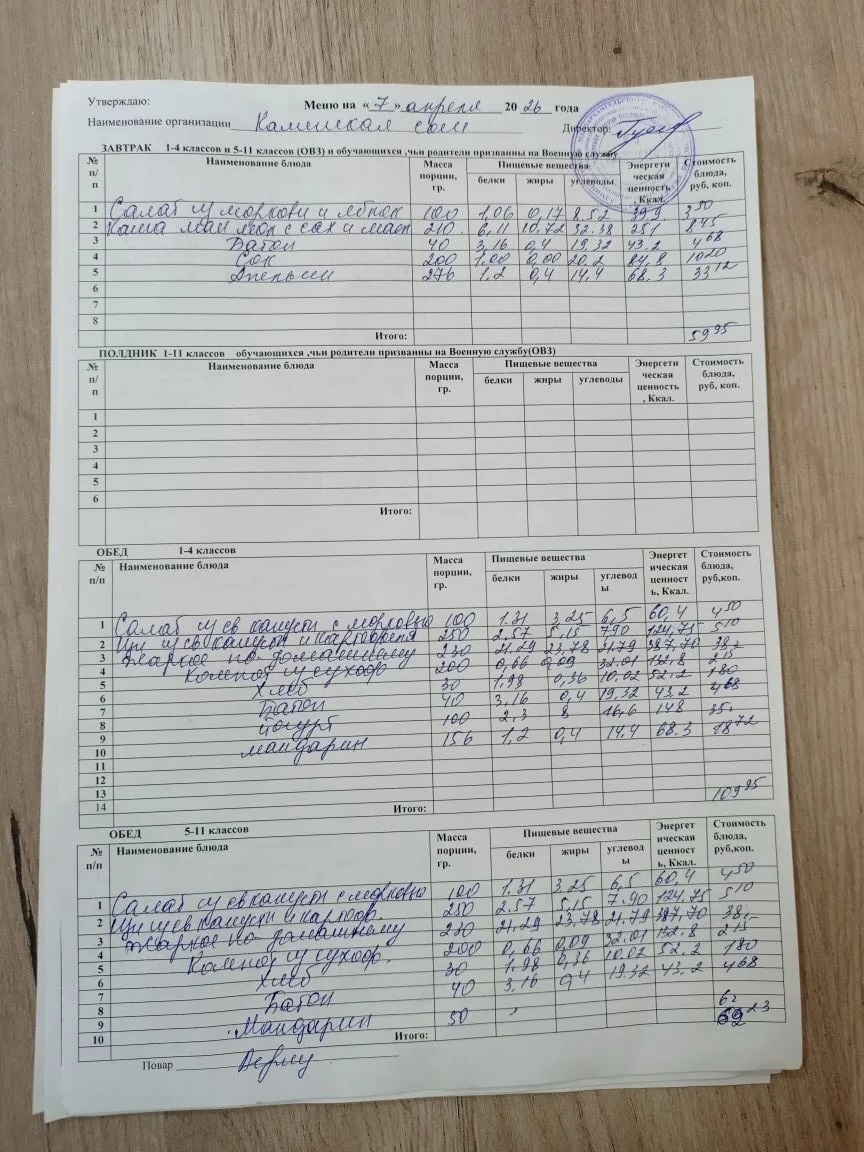 Утверждаю:
Меню на « 7 » апреля 20 26 года
Наименование организации Каменская сош Директор:
ЗАВТРАК 1-4 классов и 5-11 классов (ОВЗ) и обучающихся ,чьи родители призванны на Военную службу
№ п/п Наименование блюда Масса порции, гр. Пищевые вещества белки жиры углеводы Энергети ческая ценность, Ккал. Стоимость блюда, руб, коп.
1 Салат из моркови и яблок 100 1,06 0,17 8.52 39,9 3 50
2 Каша ман мол с сах и масл 210 6,11 10.72 32.38 251 8 45
3 Батон 40 3,16 0,4 19,32 43.2 4 68
4 Сок 200 1,00 0,00 20.2 84,8 10 20
5 Апельсин 276 1,2 0,4 14,4 68.3 33 12
6
7
8
Итого: 59 95
ПОЛДНИК 1-11 классов обучающихся ,чьи родители призванны на Военную службу(ОВЗ)
№ п/п Наименование блюда Масса порции, гр. Пищевые вещества белки жиры углеводы Энергети ческая ценность , Ккал. Стоимость блюда, руб, коп.
1
2
3
4
5
6
Итого:
ОБЕД 1-4 классов
№ п/п Наименование блюда Масса порции, гр. Пищевые вещества белки жиры углевод ы Энергет ическая ценност ь, Ккал. Стоимость блюда, руб,коп.
1 Салат из св капусты с морковью 100 1.31 3,25 6,5 60,4 4 50
2 Щи из св капусты и картофеля 250 2.57 5,15 7.90 124,75 5 10
3 Жаркое по-домашнему 230 21.29 23,78 21.79 387,70 38
4 Компот из сухофр 200 0,66 0,09 32.01 132,8 2 15
5 Хлеб 30 1,98 0,36 10,02 52,2 1 80
6 Батон 40 3,16 0,4 19,32 43.2 4 68
7 Йогурт 100 2,3 8 16,6 148 35
8 мандарин 156 1,2 0,4 14.4 68.3 18 72
9
10
11
12
13
14 Итого: 109 95
ОБЕД 5-11 классов
№ п/п Наименование блюда Масса порции, гр. Пищевые вещества белки жиры углевод ы Энергет ическая ценност ь, Ккал. Стоимость блюда, руб,коп.
1 Салат из св капусты с морковью 100 1.31 3.25 6,5 60,4 4 50
2 Щи из св капусты и картоф. 250 2.57 5,15 7.90 124.75 5 10
3 Жаркое по-домашнему 230 21.29 23,78 21.79 387,70 38
4 Компот из сухофр. 200 0,66 0,09 32.01 132.8 2 15
5 Хлеб 30 1.98 0,36 10.02 52.2 1 80
6 Батон 40 3,16 0,4 19.32 43.2 4 68
7
8 Мандарин 50 6
9
10 Итого: 23
Повар